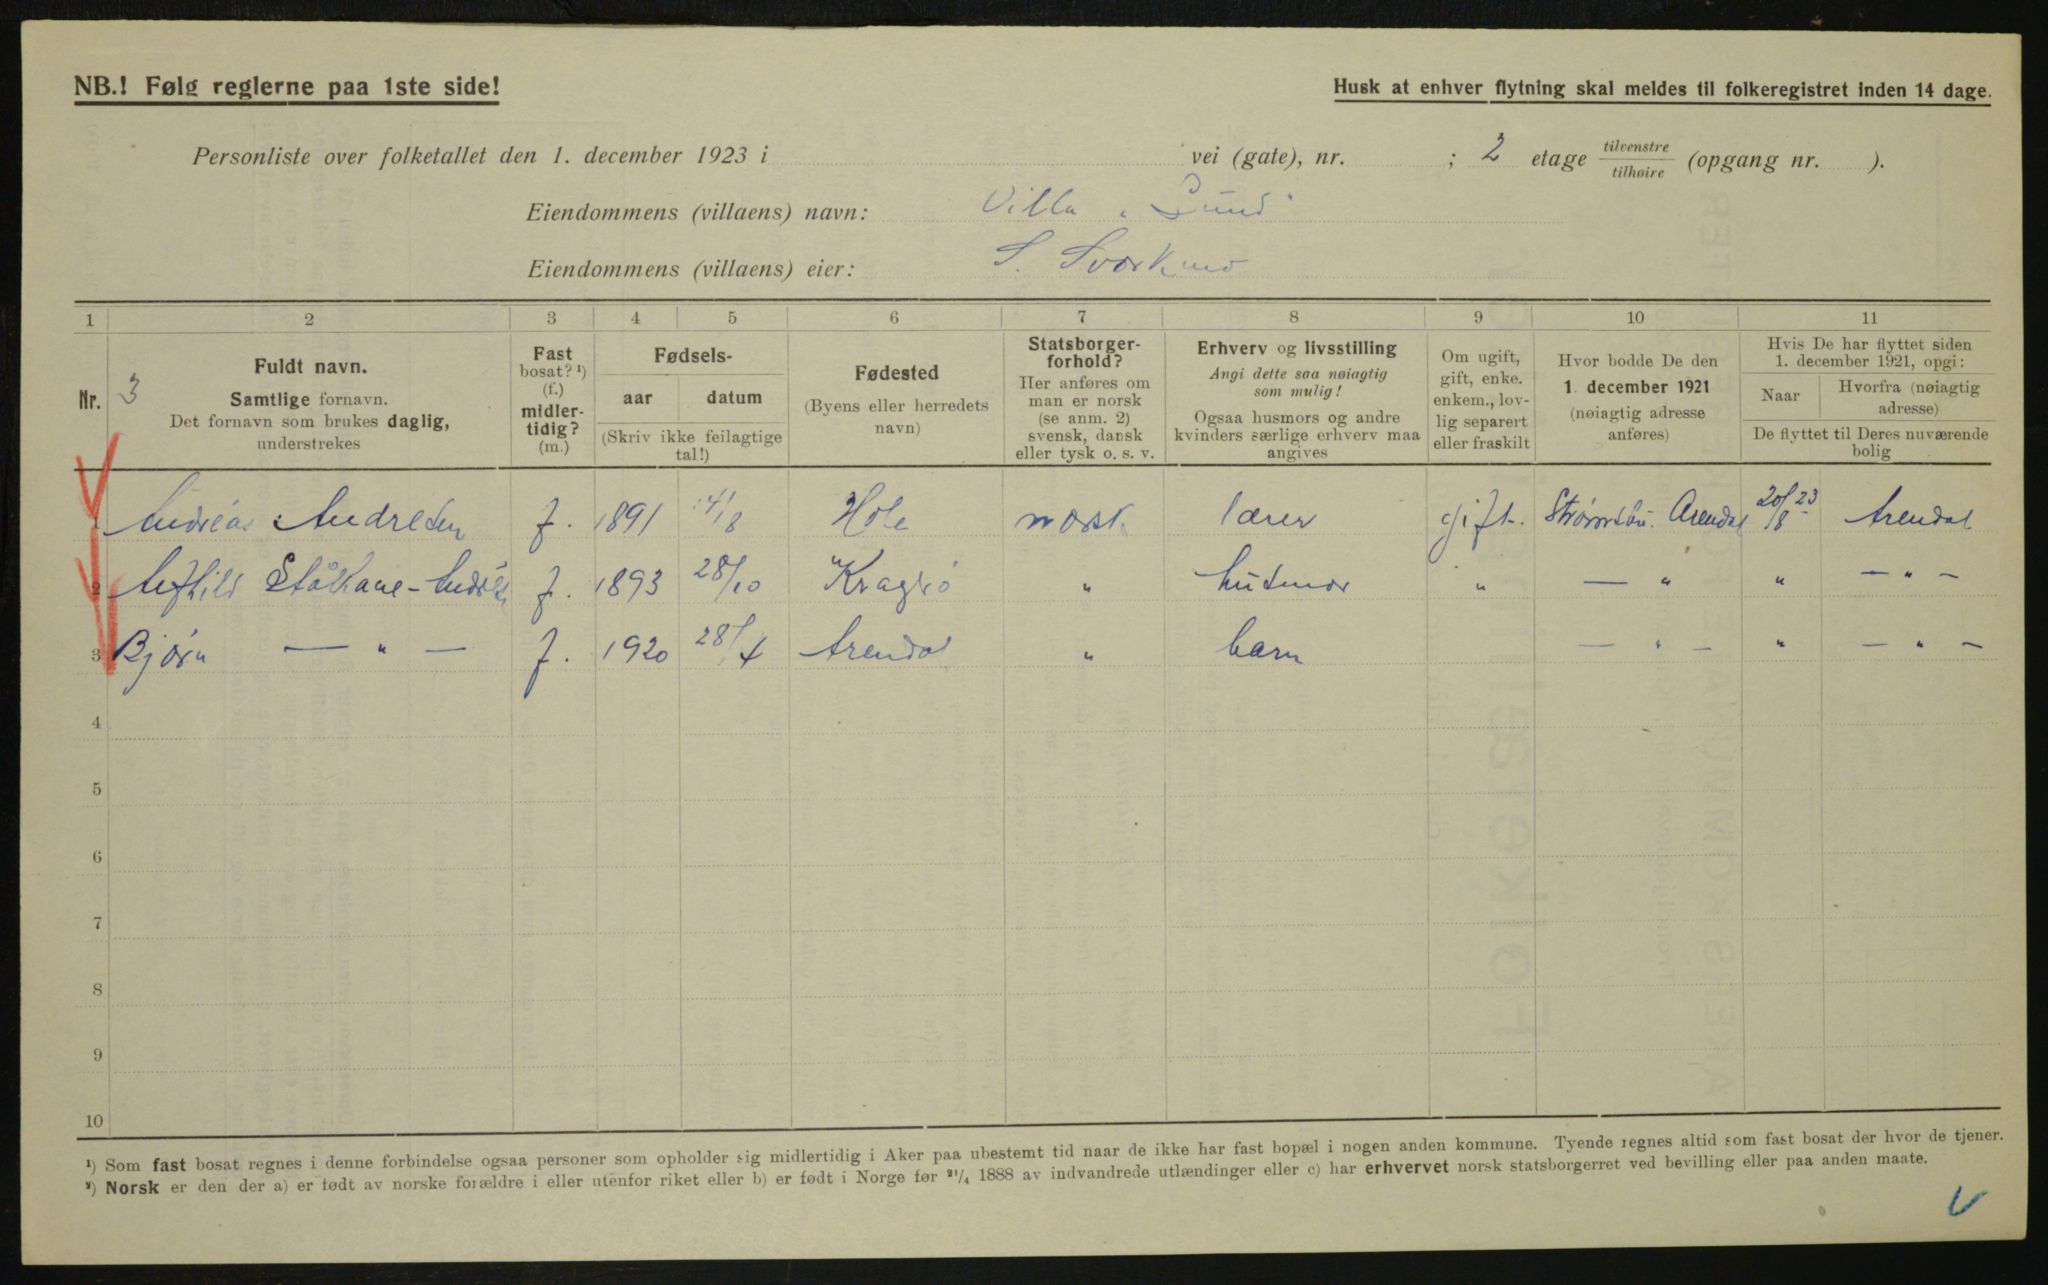 NB.! Følg reglerne paa 1ste side!
Husk at enhver flytning skal meldes til folkeregistret inden 14 dage.
Personliste over folketallet den 1. december 1923 i vei (gate), nr. ; 2 etage tilvenstre tilhøire (opgang nr. ).
Eiendommens (villaens) navn: Villa „Lund"
Eiendommens (villaens) eier: S. Svorkmo
1 2 3 4 5 6 7 8 9 10 11
Nr. 3
Fuldt navn.
Samtlige fornavn.
Det fornavn som brukes daglig,
understrekes
Fast
bosat? ¹)
(f.)
midler-
tidig?
(m.)
Fødsels-
aar datum
(Skriv ikke feilagtige
tal!)
Fødested
(Byens eller herredets
navn)
Statsborger-
forhold?
Her anføres om
man er norsk
(se anm. 2)
svensk, dansk
eller tysk o. s. v.
Erhverv og livsstilling
Angi dette saa nøiagtig
som mulig!
Ogsaa husmors og andre
kvinders særlige erhverv maa
angives
Om ugift,
gift, enke.
enkem., lov-
lig separert
eller fraskilt
Hvor bodde De den
1. december 1921
(nøiagtig adresse
anføres)
Hvis De har flyttet siden
1. december 1921, opgi:
Naar Hvorfra (nøiagtig
adresse)
De flyttet til Deres nuværende
bolig
1 Andreas Andresen f. 1891 14/8 Hole norsk lærer gift. Arendal 20/8 23 Arendal
2 f. 1893 28/10 Kragerø „ husmor „ — „ „ — „ —
3 Bjørn — „ — f. 1920 28/4 Arendal „ barn — „ — „ — „ —
4
5
6
7
8
9
10
¹) Som fast bosat regnes i denne forbindelse ogsaa personer som opholder sig midlertidig i Aker paa ubestemt tid naar de ikke har fast bopæl i nogen anden kommune. Tyende regnes altid som fast bosat der hvor de tjener.
²) Norsk er den der a) er født av norske forældre i eller utenfor riket eller b) er født i Norge før ²¹/₄ 1888 av indvandrede utlændinger eller c) har erhvervet norsk statsborgerret ved bevilling eller paa anden maate.